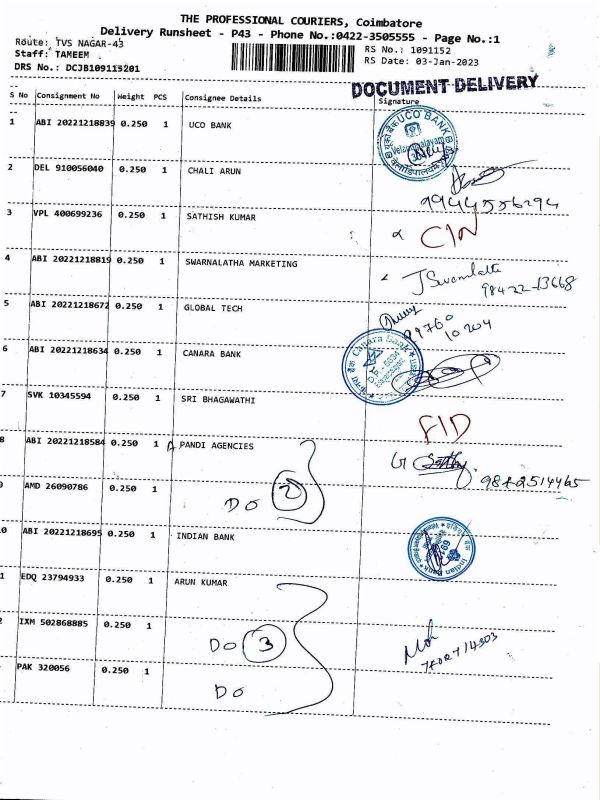 THE PROFESSIONAL COURIERS, Coimbatore
Delivery Runsheet - P43 - Phone No.:0422-3505555 - Page No.:1
Route: TVS NAGAR-43 RS No.: 1091152
Staff: TAMEEM RS Date: 03-Jan-2023
DRS No.: DCJB109115201
DOCUMENT DELIVERY
S No Consignment No Weight PCS Consignee Details Signature
1 ABI 20221218839 0.250 1 UCO BANK
UCO BANK
2 DEL 910056040 0.250 1 CHALI ARUN
9944556294
3 VPL 400699236 0.250 1 SATHISH KUMAR
C/N
4 ABI 20221218819 0.250 1 SWARNALATHA MARKETING
J Swarnalatha
98422-13668
5 ABI 20221218672 0.250 1 GLOBAL TECH
99760
10204
6 ABI 20221218634 0.250 1 CANARA BANK
Canara Bank
7 SVK 10345594 0.250 1 SRI BHAGAWATHI
F/D
8 ABI 20221218584 0.250 1 PANDI AGENCIES
9842514465
9 AMD 26090786 0.250 1
Do 2
10 ABI 20221218695 0.250 1 INDIAN BANK
Indian Bank
1 EDQ 23794933 0.250 1 ARUN KUMAR
2 IXM 502868885 0.250 1
Do 3
PAK 320056 0.250 1
Do